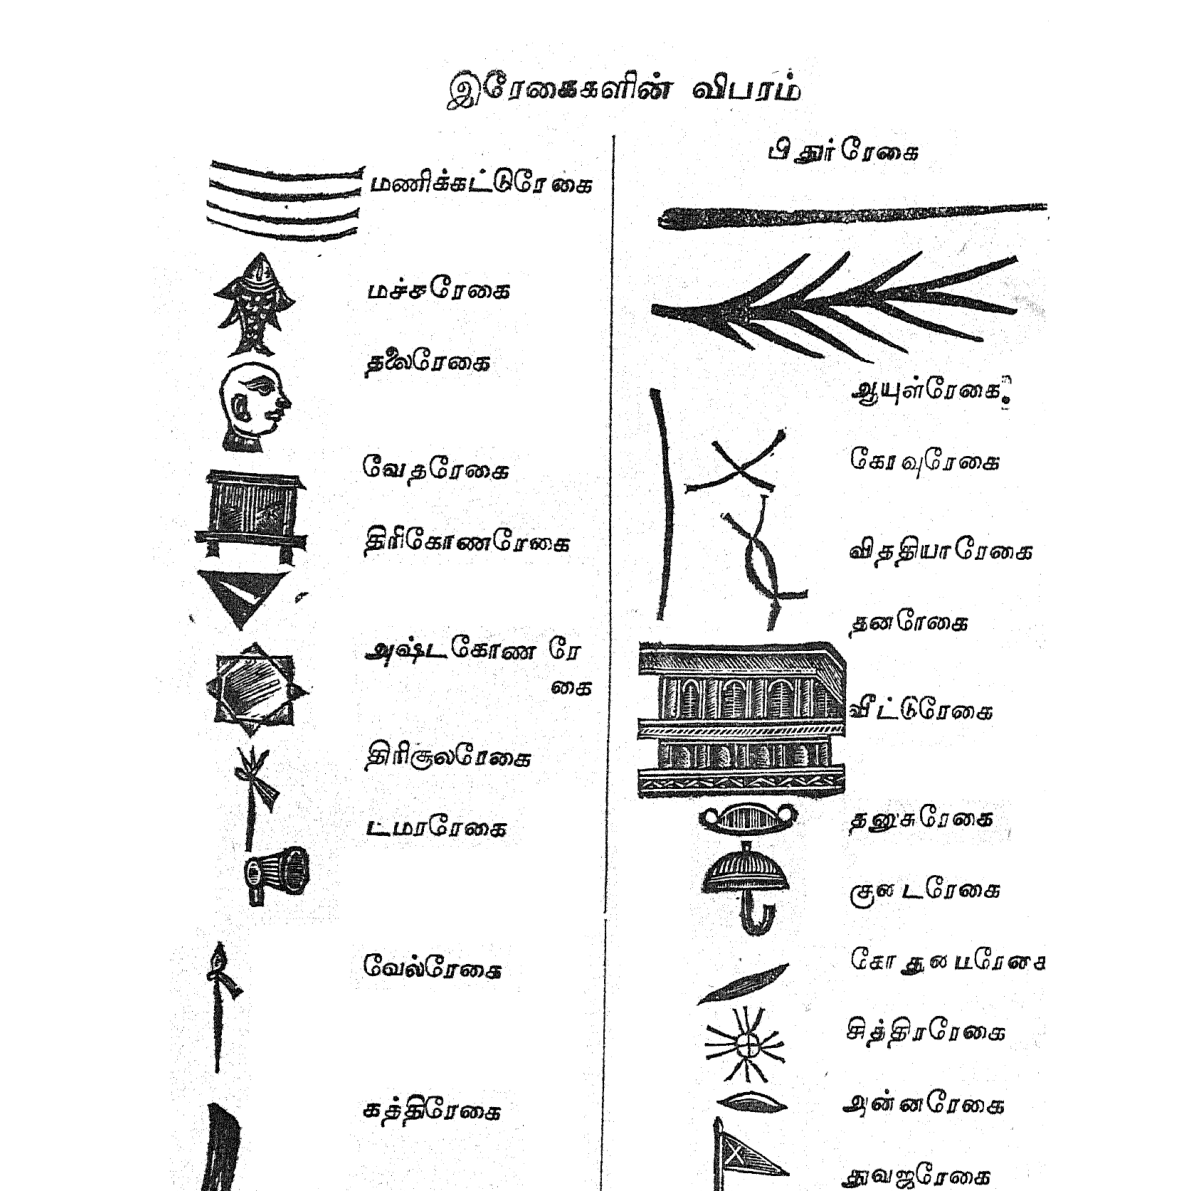 இரேகைகளின் விபரம்
மணிக்கட்டுரேகை
மச்சரேகை
தலைரேகை
வேதரேகை
திரிகோணரேகை
அஷ்டகோண ரே
கை
திரிசூலரேகை
டமரரேகை
வேல்ரேகை
கத்திரேகை
பிதுர்ரேகை
ஆயுள்ரேகை
கோவுரேகை
வித்தியாரேகை
தனரேகை
வீட்டுரேகை
தனுசுரேகை
குடைரேகை
சித்திரரேகை
அன்னரேகை
துவஜரேகை